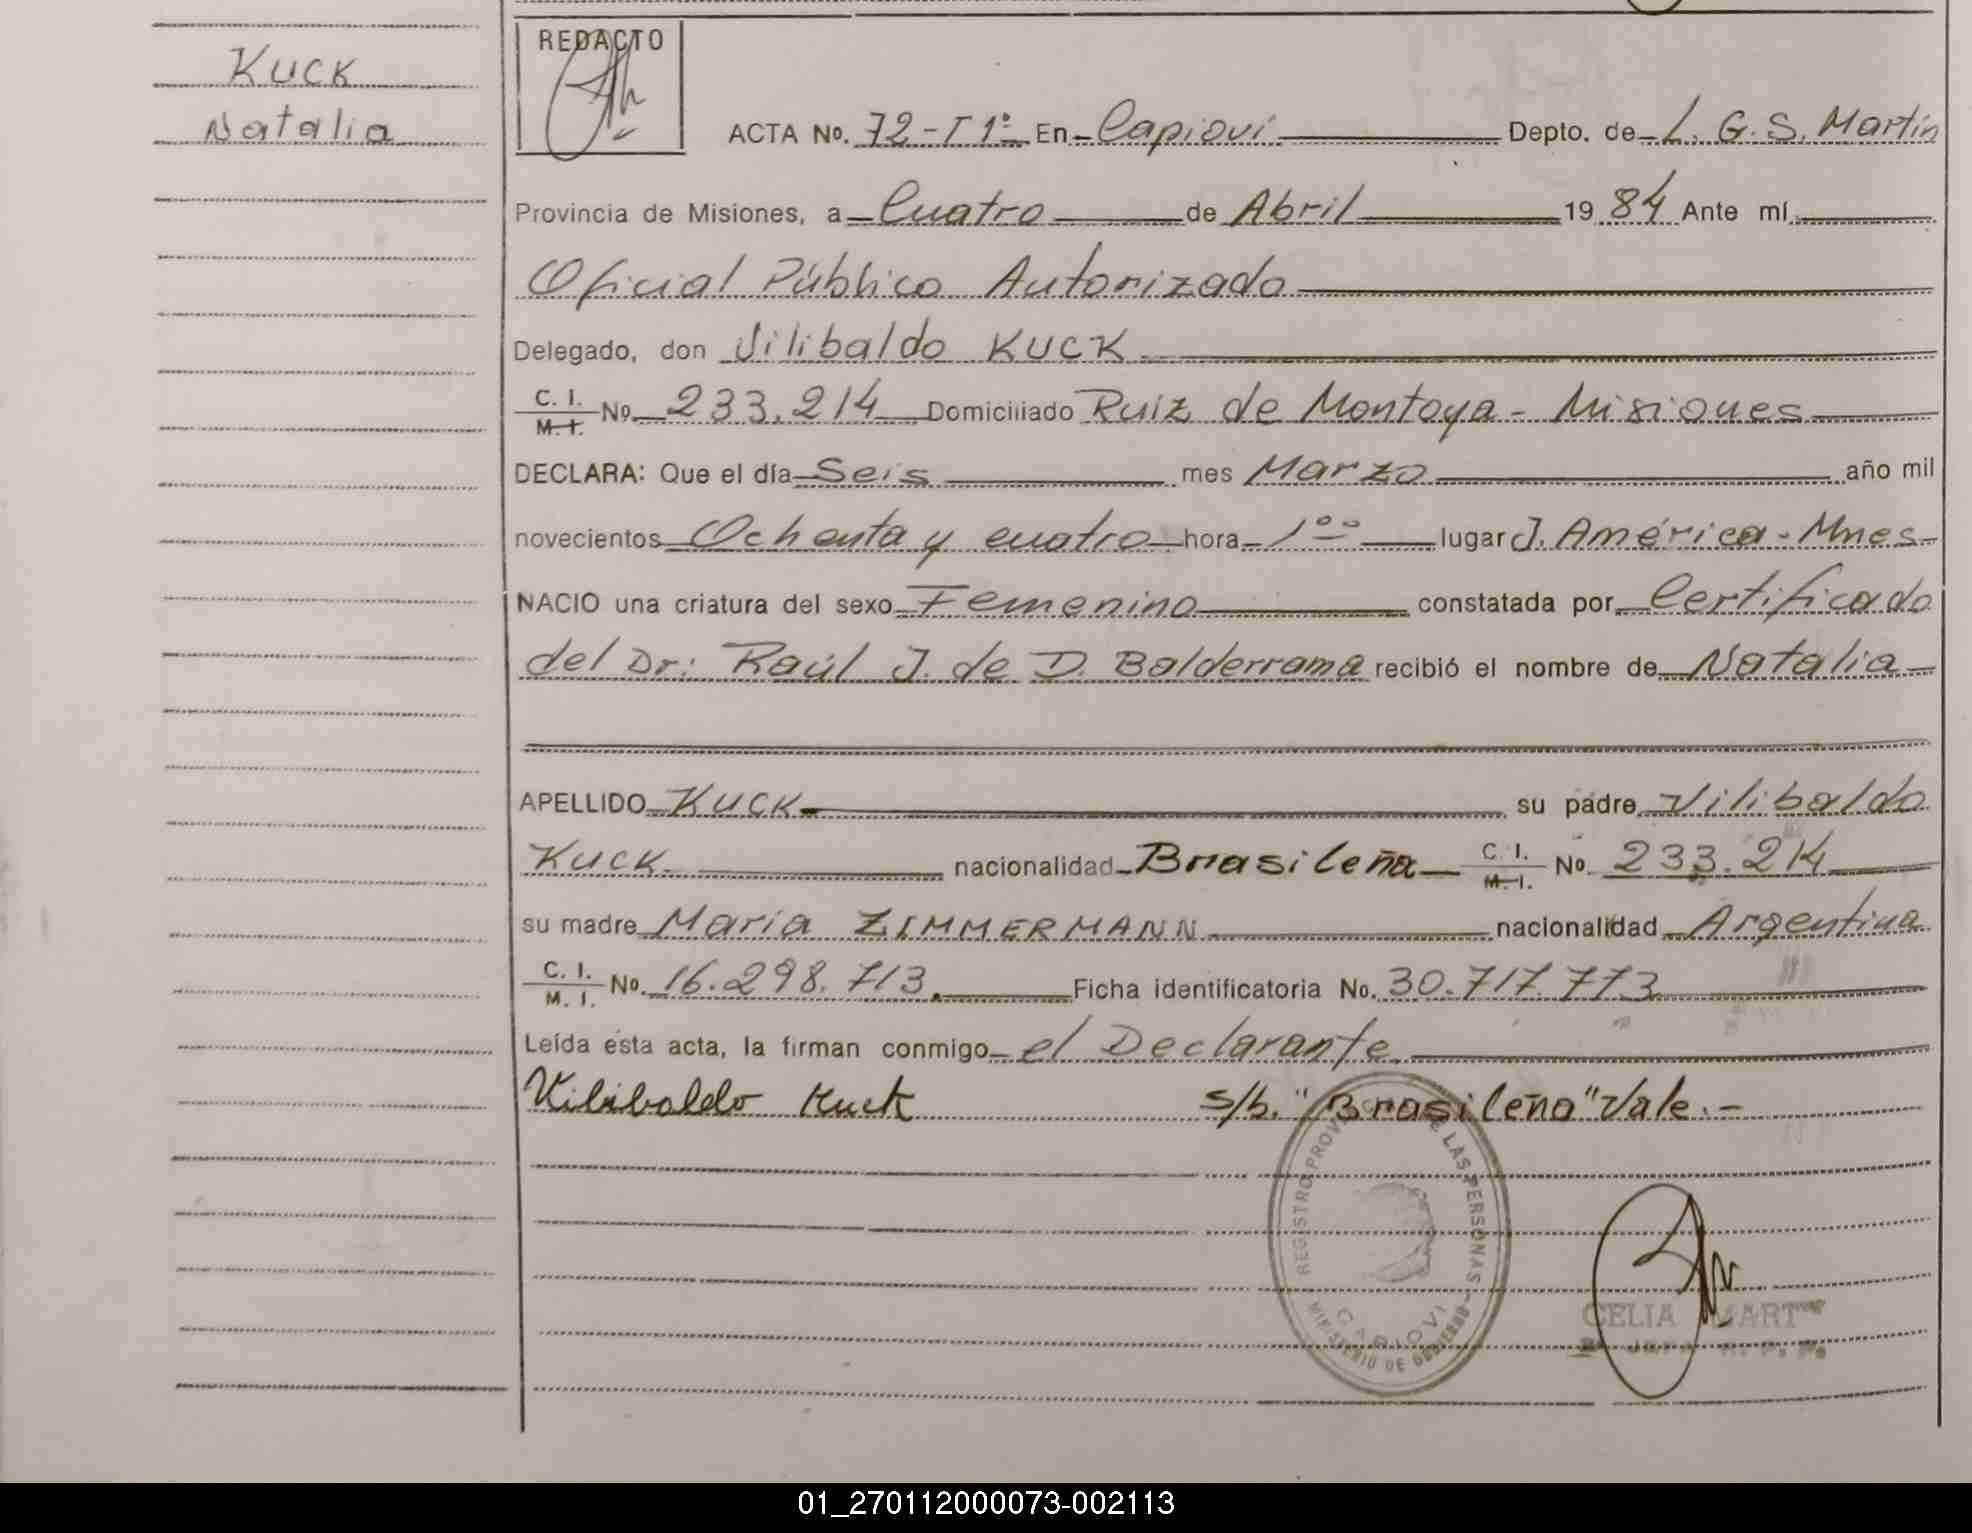 KUCK
Natalia
REDACTO
ACTA No. 72-T1º En Capioví Depto. de L. G. S. Martín
Provincia de Misiones, a Cuatro de Abril 19 84 Ante mí
Oficial Público Autorizado
Delegado, don Vilibaldo KUCK
C. I.
M. I.
No 233.214 Domiciliado Ruiz de Montoya - Misiones
DECLARA: Que el día Seis mes Marzo año mil
novecientos Ochenta y cuatro hora 1°° lugar J. América - Mnes-
NACIO una criatura del sexo Femenino constatada por Certificado
del Dr: Raúl J. de D. Balderrama recibió el nombre de Natalia
APELLIDO KUCK su padre Vilibaldo
KUCK nacionalidad Brasileña C. I.
M. I.
No 233.214
su madre María ZIMMERMANN nacionalidad Argentina
C. I.
M. I.
No. 16.298.713. Ficha identificatoria No. 30.717.773
Leída esta acta, la firman conmigo el Declarante
Vilibaldo Kuck s/b. "Brasileña" Vale.-
REGISTRO DE LAS PERSONAS
CAPIOVI
MINISTERIO DE GOBIERNO
CELIA
01_270112000073-002113